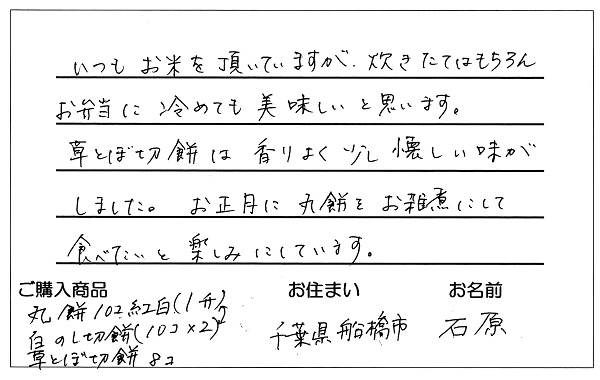 いつもお米を頂いていますが、炊きたてはもちろん
お弁当に冷めても美味しいと思います。
草とぼ切餅は香りよく少し懐しい味が
しました。お正月に丸餅をお雑煮にして
食べたいと楽しみにしています。
ご購入商品 お住まい お名前
丸餅10コ紅白(1升)
白のし切餅(10コ×2)
草とぼ切餅8コ
千葉県船橋市 石原